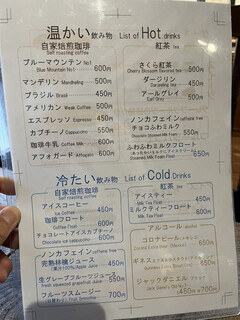 温かい飲み物 List of Hot drinks
自家焙煎珈琲
Self roasting coffee
ブルーマウンテン No1 600円
Blue Mountain No1
マンデリン Mandheling 500円
ブラジル Brasil 450円
アメリカン Weak Coffee 500円
エスプレッソ Espresso 450円
カプチーノ Cappuccino 550円
珈琲牛乳 Coffee Milk 600円
アフォガード Affogato 600円
紅茶 tea
さくら紅茶 500円
Cherry Blossom flavored tea
ダージリン 450円
Darjeeling
アールグレイ 450円
Earl Grey
ノンカフェイン caffeine free
チョコふわミルク
ふわふわミルクフロート
冷たい飲み物 List of Cold Drinks
自家焙煎珈琲
Self roasting coffee
アイスコーヒー 450円
Ice Coffee
珈琲フロート 600円
Coffee Float
チョコレートアイスカプチーノ
Chocolate ice cappuccino 600円
ノンカフェイン caffeine free
完熟林檎ジュース 450円
(果汁100%)Apple Juice
生グレープフルーツジュース 550円
fresh squeezed grapefruit Juice
フルーツスムージー 700円
紅茶 tea
アイスティー 450円
ミルクティーフロート 600円
Milk Tea Float
アルコール alcohol
コロナビール 650円
ギネス
ジャックダニエル